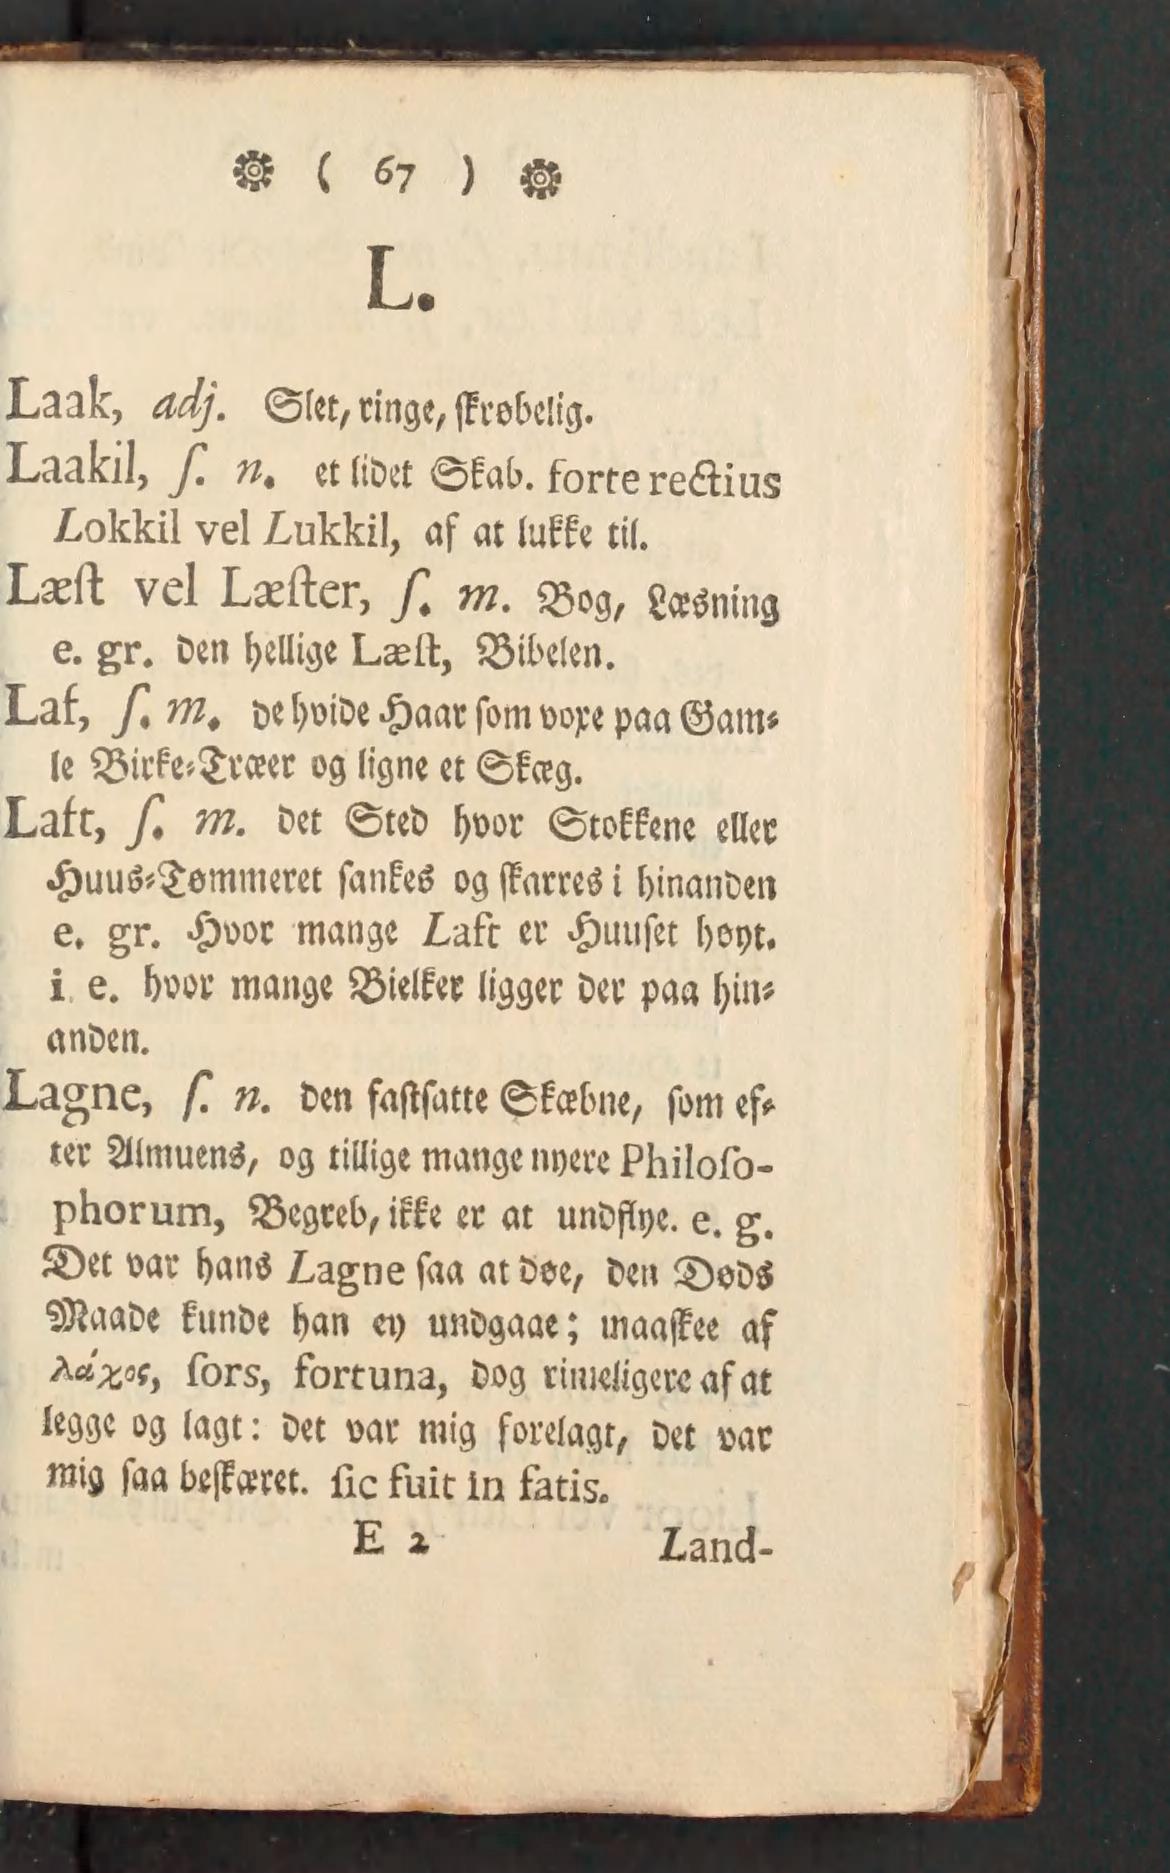 ( 67 )
L.
Laak, adj. Slet, ringe, skrøbelig.
Laakil, ſ. n. et lidet Skab. forte rectius
Lokkil vel Lukkil, af at lukke til.
Læſt vel Læſter, ſ. m. Bog, Læsning
e. gr. den hellige Læſt, Bibelen.
Laf, ſ. m. de hvide Haar ſom voxe paa Gam-
le Birke-Træer og ligne et Skæg.
Laft, ſ. m. det Sted hvor Stokkene eller
Huus-Tømmeret ſankes og ſkarres i hinanden
e. gr. Hvor mange Laft er Huuſet høyt.
i. e. hvor mange Bielker ligger der paa hin-
anden.
Lagne, ſ. n. den faſtſatte Skæbne, ſom ef-
ter Almuens, og tillige mange nyere Philoſo-
phorum, Begreb, ikke er at undflye. e. g.
Det var hans Lagne ſaa at døe, den Døds
Maade kunde han ey undgaae; maaſkee af
λάχος, ſors, fortuna, dog rimeligere af at
legge og lagt: det var mig forelagt, det var
mig ſaa beſkæret. ſic fuit in fatis.
E 2 Land-